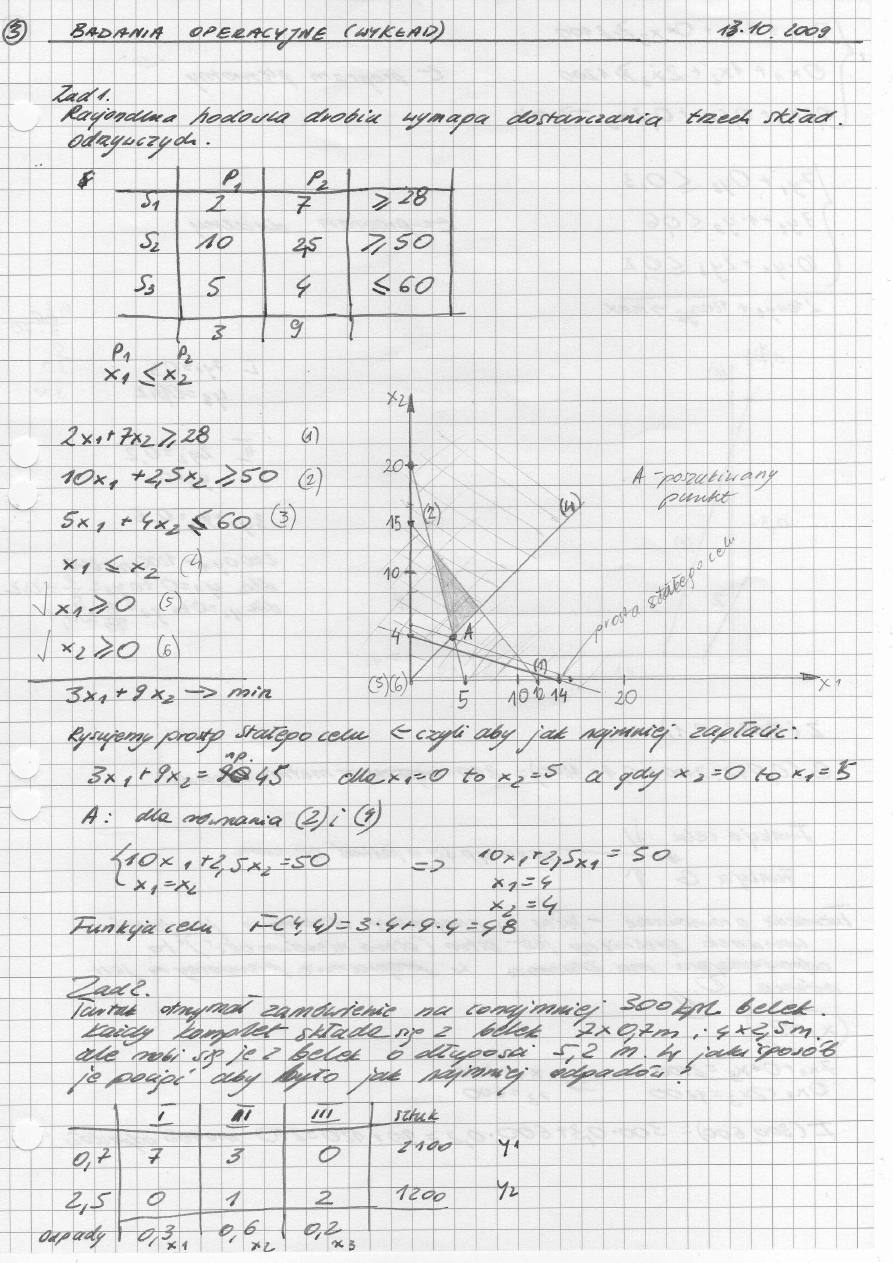 3 BADANIA OPERACYJNE (WYKŁAD) 13.10.2009
Zad1.
Racjonalna hodowla drobiu wymaga dostarczania trzech skład.
odżywczych.
P1 P2
S1 2 7 ≥ 28
S2 10 2,5 ≥ 50
S3 5 4 ≤ 60
3 9
P1 P2
x1 ≤ x2
2x1+7x2 ≥ 28 (1)
10x1 + 2,5x2 ≥ 50 (2)
5x1 + 4x2 ≤ 60 (3)
x1 ≤ x2 (4)
√ x1 ≥ 0 (5)
√ x2 ≥ 0 (6)
3x1 + 9x2 → min
x2
20
15 (2)
10
4
(4)
A
(1)
(5)(6)
5 10 12 14 20 x1
A - poszukiwany
punkt
prosta stałego celu
Rysujemy prostą stałego celu ← czyli aby jak najmniej zapłacić:
np.
3x1+9x2 = 45 dla x1=0 to x2=5 a gdy x2=0 to x1=15
A: dla równania (2) i (4)
10x1+2,5x2=50 => 10x1+2,5x1 = 50
x1=x2 x1=4
x2=4
Funkcja celu F(4,4)=3·4+9·4=48
Zad2.
Tartak otrzymał zamówienie na conajmniej 300 kpl. belek.
Każdy komplet składa się z belek 7x0,7m i 4x2,5m.
ale robi się je z belek o długości 5,2 m. W jaki sposób
je pociąć aby było jak najmniej odpadów?
I II III sztuk
0,7 7 3 0 2100 y1
2,5 0 1 2 1200 y2
odpady 0,3 x1 0,6 x2 0,2 x3